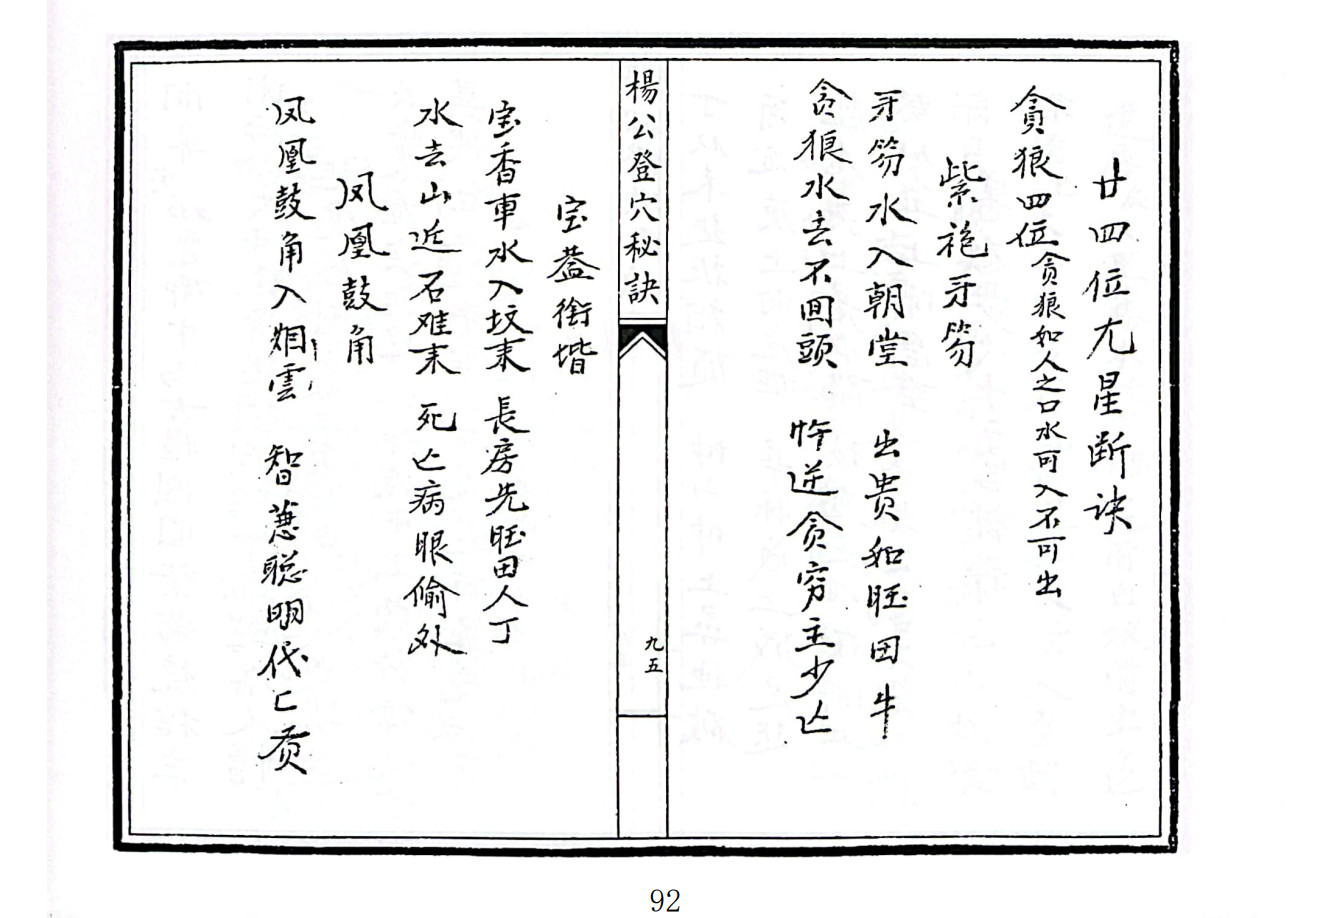 廿四位九星断诀
貪狼四位貪狼如人之口水可入不可出
紫袍牙笏
牙笏水入朝堂 出贵和旺田牛
贪狼水去不回頭 忤逆贪穷主少亡
宝盖衔堦
宝香車水入坟来 長房先旺田人丁
水去山近石难来 死亡病眼偷外
凤凰鼓角
凤凰鼓角入烟雲 智慧聪明代亡贡
楊公登穴秘訣
九五
92